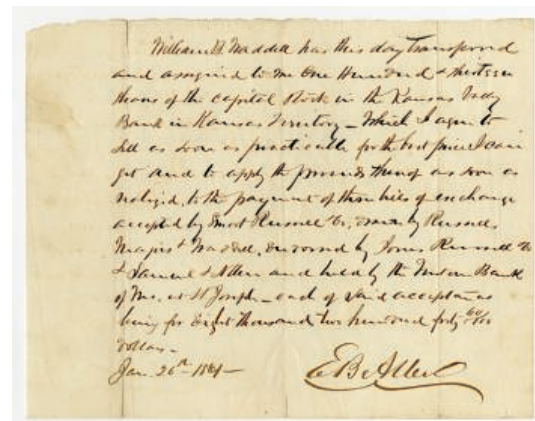 William B Waddell has this day transferred
and assigned to me One Hundred & thirteen
shares of the capital stock in the Kansas Vally
Bank in Kansas Territory – Which I agree to
sell as soon as practicable for the best price I can
get and to apply the proceeds thereof as soon as
realized, to the payment of three bills of exchange
accepted by Smoot Russell & Co, drawn by Russell
Majors & Waddell, endorsed by Jones Russell & Co
& Samuel & Allen and held by the Bank
of Mo. at St Joseph – each of said acceptances
being for Eight thousand two hundred forty
dollars –
Jan. 26th 1861 –
E B Allen